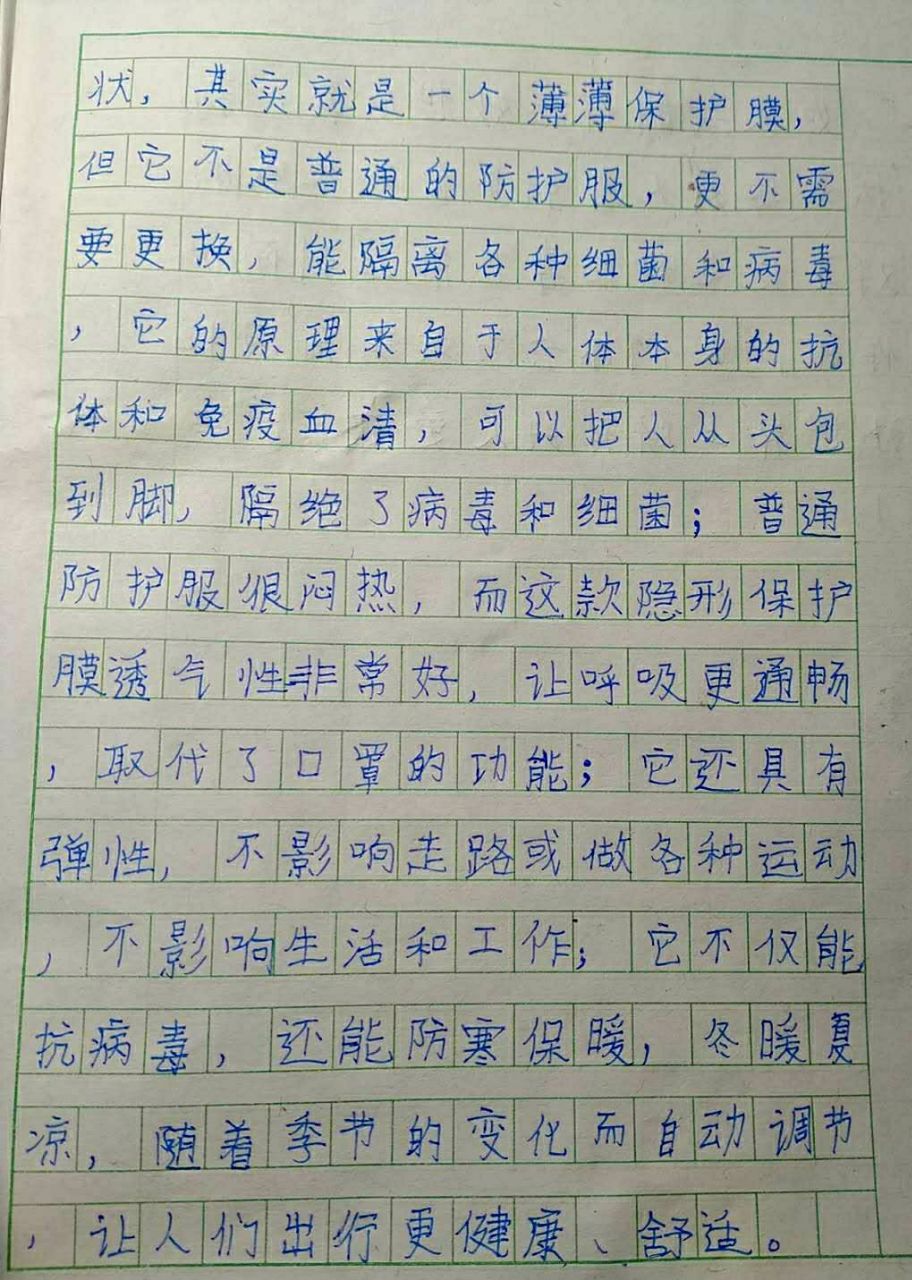 状，其实就是一个薄薄保护膜，
但它不是普通的防护服，更不需
要更换，能隔离各种细菌和病毒
，它的原理来自于人体本身的抗
体和免疫血清，可以把人从头包
到脚，隔绝了病毒和细菌；普通
防护服很闷热，而这款隐形保护
膜透气性非常好，让呼吸更通畅
，取代了口罩的功能；它还具有
弹性，不影响走路或做各种运动
，不影响生活和工作；它不仅能
抗病毒，还能防寒保暖，冬暖夏
凉，随着季节的变化而自动调节
，让人们出行更健康、舒适。